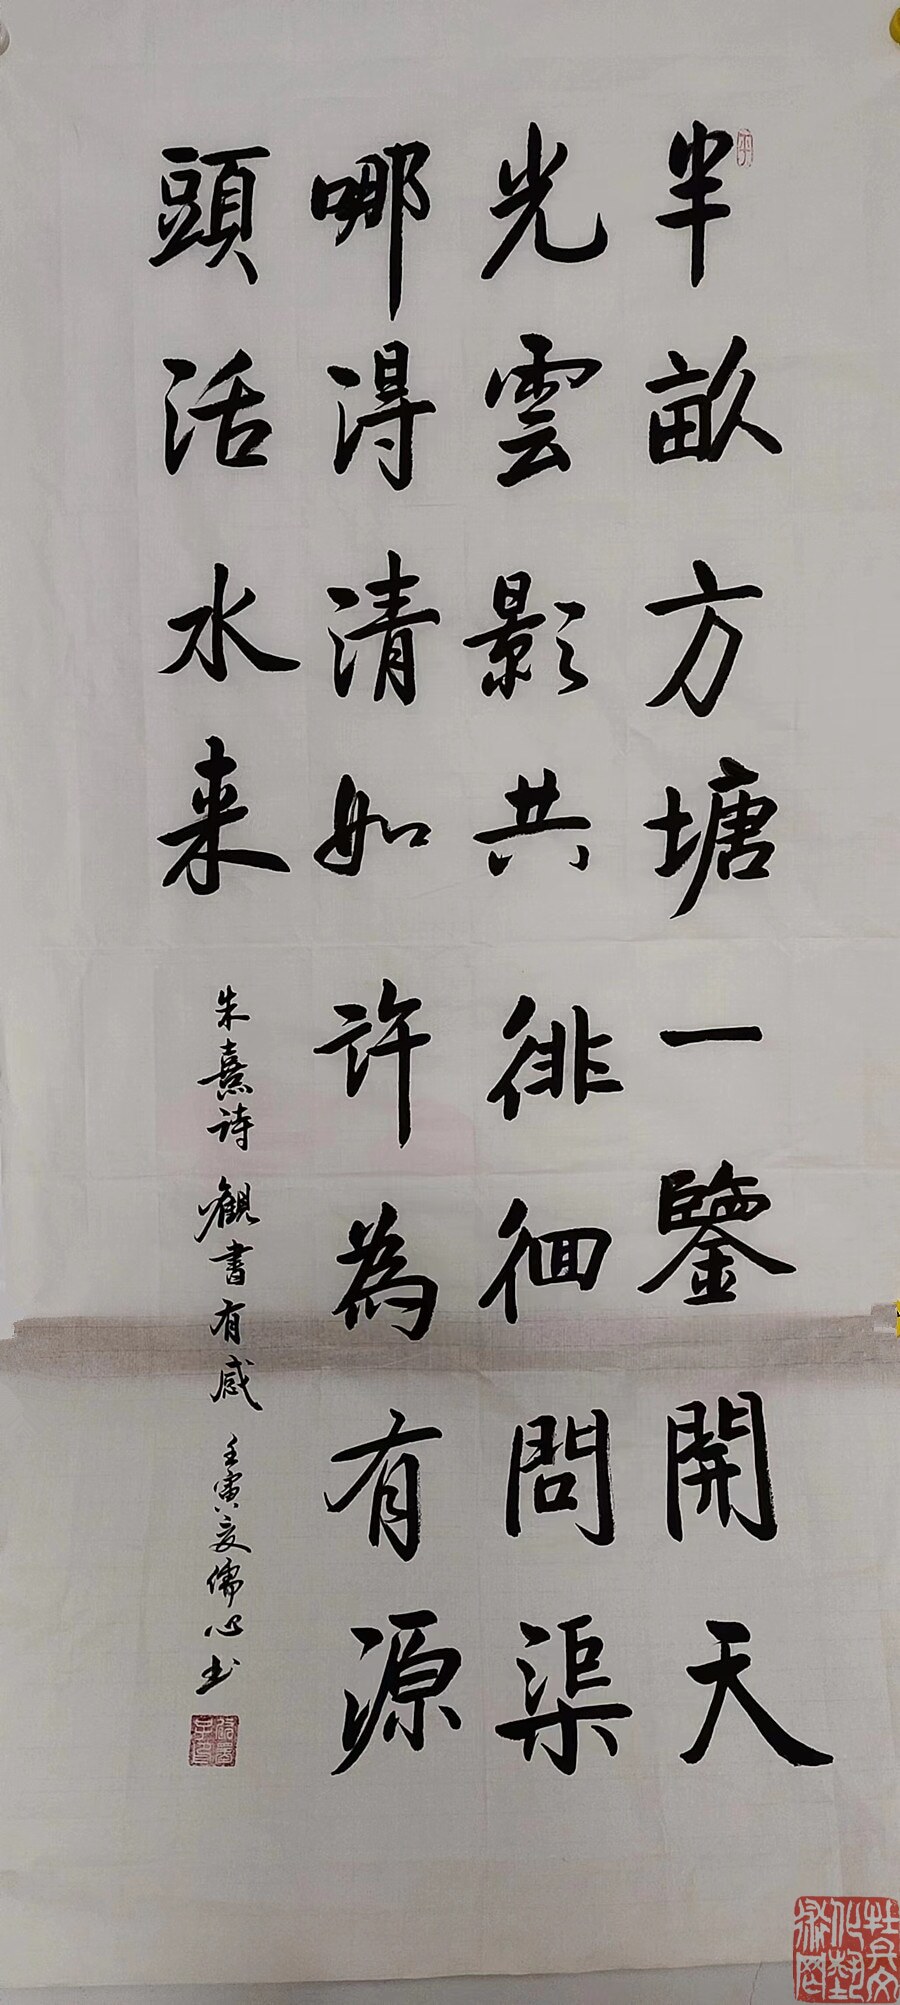 半畝方塘一鑒開天
光雲影共徘徊問渠
哪得清如許為有源
頭活水来
朱熹诗 觀書有感 壬寅夏儒心书